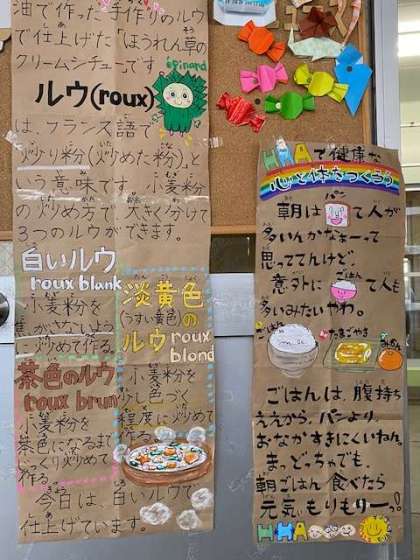 油で作った手作りのルウ
で仕上げた「ほうれん草の
クリームシチュー」です
épinard
ルウ(roux)
は、フランス語で
炒り粉(炒めた粉)、と
いう意味です。小麦粉
の炒め方で大きく分けて
3つのルウができます。
白いルウ
roux blank
小麦粉を
焦がさないよう
に炒めて作る。
淡黄色
(うすい黄色)の
ルウ roux
blond
小麦粉を
少し色づく
程度に炒めて
作る。
茶色のルウ
roux brun
小麦粉を
茶色になるまで
じっくり炒めて
作る。
今日は、白いルウで
仕上げています。
HHAで健康な
心と体をつくろう
朝はパンて人が
多いんかなぁーって
思っててんけど、
意外にごはんて人も
多いみたいやわ。
ごはん
たまごやき
みかん
ごはんは、腹持ち
ええから、パンより
おなかすきにくいねん。
まっ、どっちゃでも、
朝ごはん食べたら
元気もりもりーっ!!
HHA